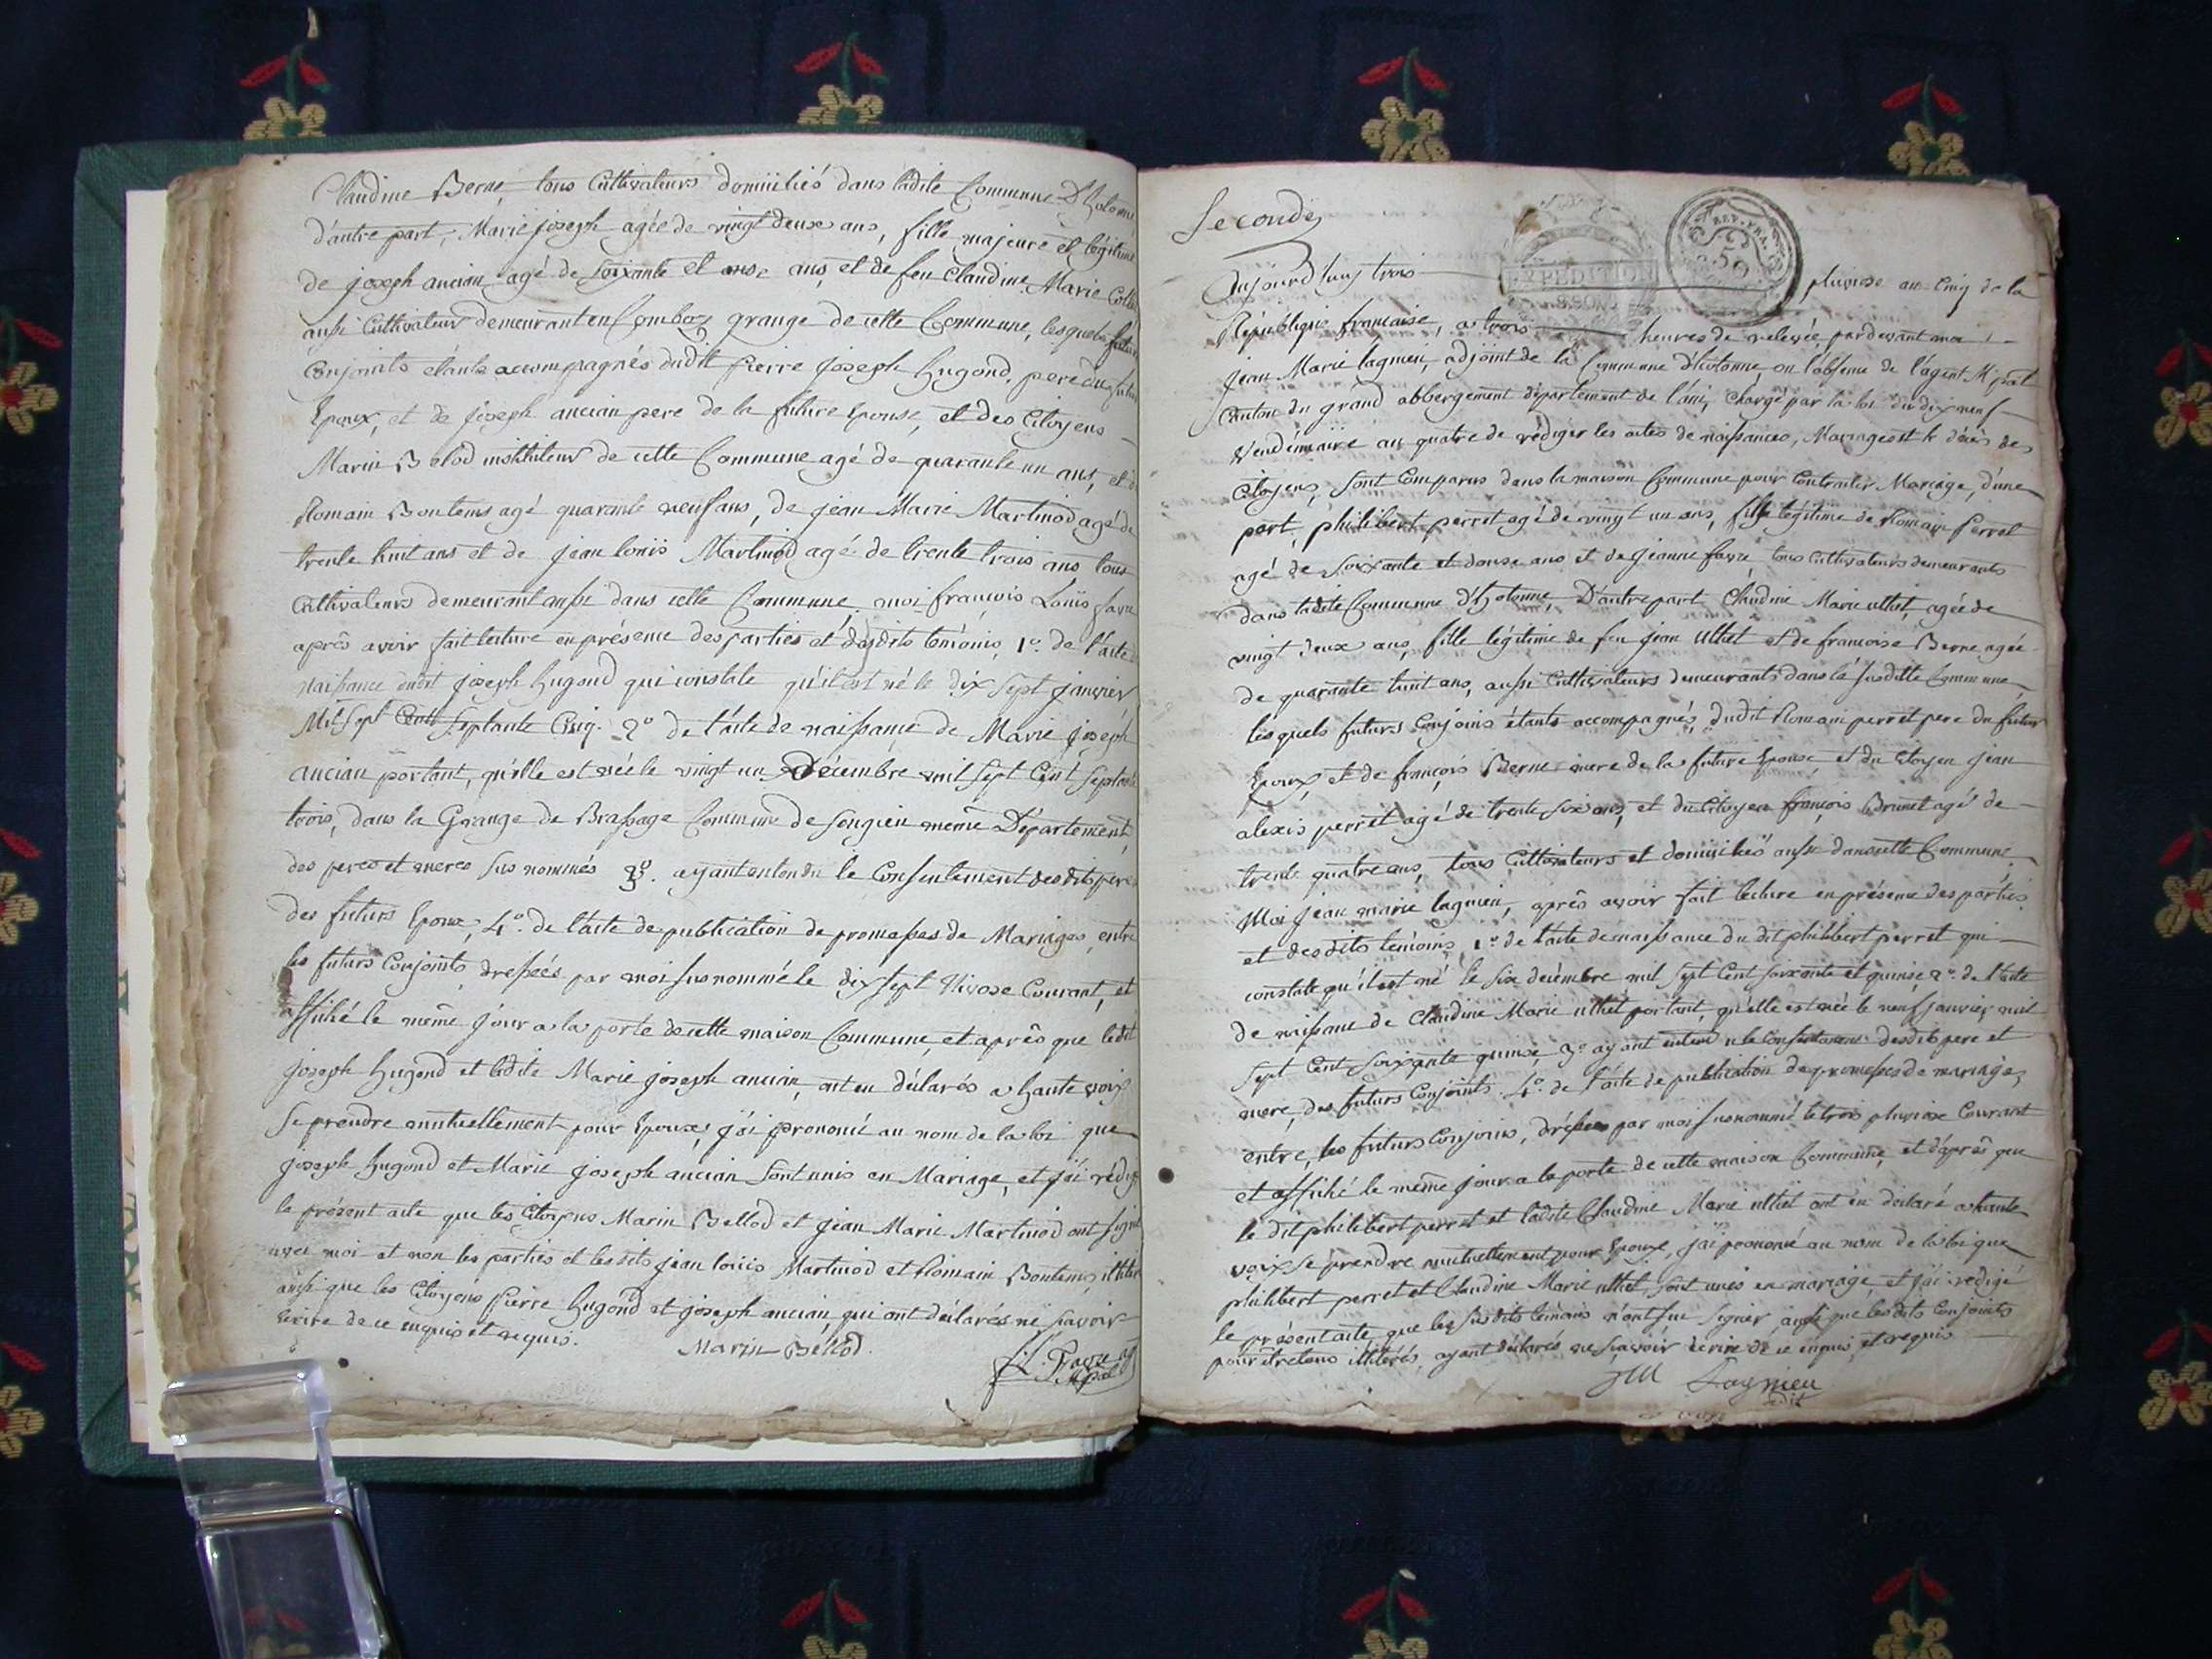 Claudine Berne, tous Cultivateurs domiiliés dans ladite Commune D'holonne
d'autre part, Marie joseph agée de vingt deux ans, fille majeure et légitime
de joseph ancian agé de soixante et onse ans, et de feu Claudine Marie
aussi Cultivateur demeurant en grange de cette Commune, lesquels futurs
Conjoints étants accompagnés dudit pierre joseph hugond, pere du futur
Epoux, et de joseph ancian pere de la future Epouse, et des Citoyens
Marin Belod instituteur de cette Commune agé de quarante un ans, et de
Romain Bontems agé quarante neuf ans, de jean Marie Martinod agé de
trente huit ans et de jean louis Martinod agé de trente trois ans tous
Cultivateurs demeurant aussi dans cette Commune. moi françois Louis favre
après avoir fait lecture en présence des parties et desdits témoins, 1o. de l'acte
naissance dudit joseph hugond qui constate qu'il est né le dix sept janvier
Mil sept Cent septante Cinq. 2o de l'acte de naissance de Marie joseph
ancian portant, qu'elle est née le vingt un Décembre mil sept Cent septante
trois, dans la Grange de Brassage Commune de songieu même Département,
des peres et meres sus nommés 3o. ayant entendu le Consentement desdits peres
des futurs Epoux, 4o. de l'acte de publication de promesses de Mariages, entre
les futurs Conjoints, dressées par moi susnommé le dix sept Nivose Courant, et
affiché le même jour a la porte de cette maison Commune, et après que ledit
joseph hugond et ladite Marie joseph ancian, ont eu déclarés a haute voix
se prendre mutuellement pour Epoux, j'ai prononcé au nom de la loi que
joseph hugond et Marie joseph ancian sont unis en Mariage, et j'ai rédigé
le présent acte que les Citoyens Marin Bellod et jean Marie Martinod ont signé
avec moi et non les parties et lesdits jean louis Martinod et Romain Bontems,
ainsi que les Citoyens pierre hugond et joseph ancian, qui ont déclarés ne sçavoir
écrire de ce enquis et requis.
Marin Bellod.
f.L. Favre
Seconde
REP. FRA.
50
EXPEDITION
Aujourd'huy trois pluviose an Cinq de la
République francaise, a trois heures de relevée pardevant moi
jean Marie lagnieu, adjoint de la Commune d'holonne, en l'absence de l'agent Mpal
Canton du grand abbergement département de l'ain, Chargé par la loi du dix neuf
Vendémiaire an quatre de rédiger les actes de naissances, Mariages et décès des
Citoyens, sont Comparus dans la maison Commune pour Contracter Mariage, d'une
part, philibert perret agé de vingt un ans, fils légitime de Romain perret
agé de soixante et douse ans et de jeanne favre tous cultivateurs demeurants
dans ladite Commune d'holonne, D'autre part Claudine Marie uthet, agée de
vingt deux ans, fille légitime de feu jean uthet et de francoise Berne agée
de quarante huit ans, aussi Cultivateurs demeurants dans la susditte Commune
lesquels futurs Conjoins étants accompagnés, dudit Romain perret pere du futur
Epoux, et de françois Berne mere de la future Epouse, et du Citoyen jean
alexis perret agé de trente six ans, et du Citoyen françois Brunet agé de
trente quatre ans, tous Cultivateurs et domiciliés aussi dans cette Commune,
Moi jean marie lagnieu, après avoir fait lecture en présence des parties
et desdits témoins, 1o. de l'acte de naissance du dit philibert perret qui
constate qu'il est né le six decémbre mil sept Cent soixante et quinse, 2o. de l'acte
de naissance de Claudine Marie uthet portant, qu'elle est née le neuf janvier mil
sept Cent soixante quinse, 3o ayant entendu le Consentement desdits pere et
mere, des futurs Conjoints. 4o. de l'acte de publication de promesses de mariage,
entre, les futurs Conjoins, dressées par moi susnommé le trois pluviose Courant
et affiché le même jour a la porte de cette maison Commune, et d'après que
le dit philibert perret et ladite Claudine Marie uthet ont eu declaré a haute
voix se prendre mutuellement pour Epoux, j'ai prononcé au nom de la loi que
philibert perret et Claudine Marie uthet, sont unis en mariage, et j'ai redigé
le présent acte, que les susdits témoins n'ont su signer ainsi que lesdits Conjoints
pour être tous illitérés, ayant déclarés ne sçavoir écrire de ce enquis et requis
JM Lagnieu
adjt